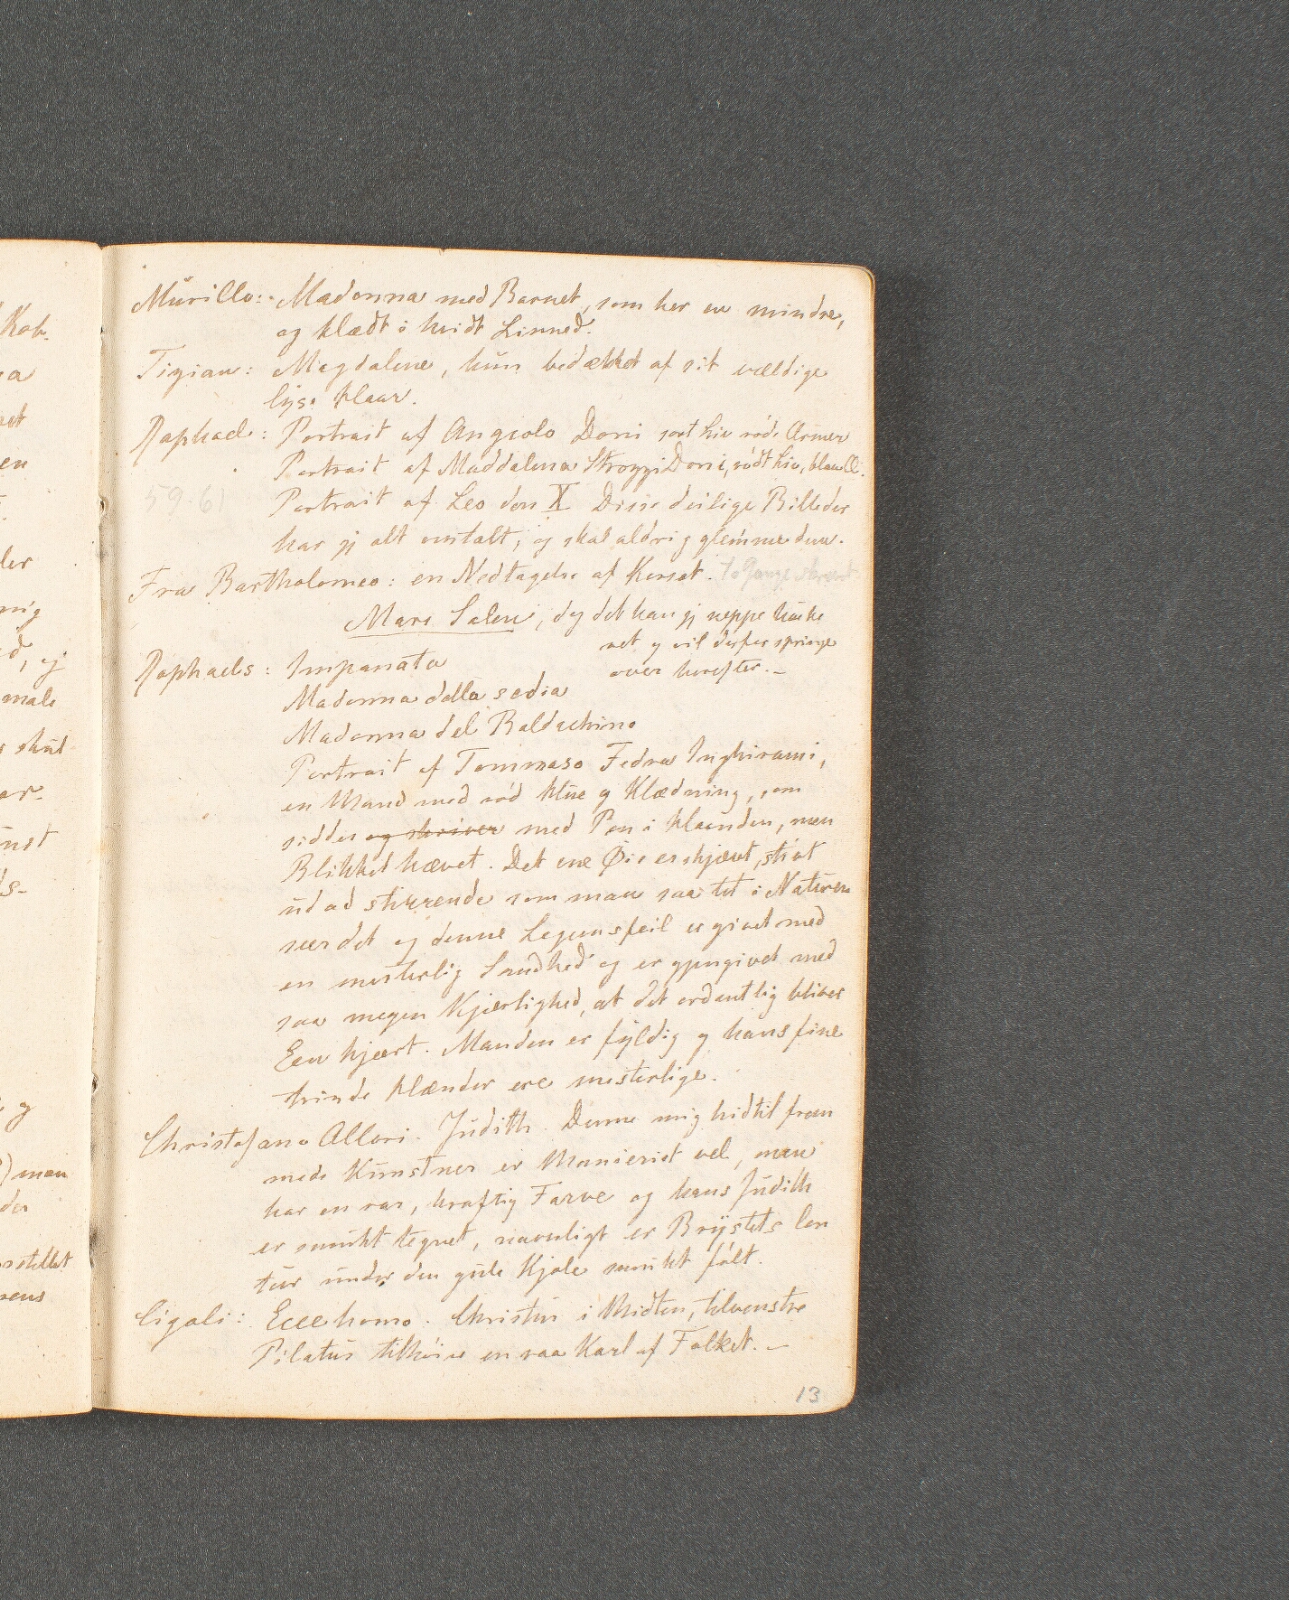 Murillo: Madonna med Barnet, som her er mindre,
og klædt i hvidt Linned.
Tizian: Magdalene, kun bedækket af sit vældige
lyse Haar.
Raphael: Portrait af Angiolo Doni sort Liv røde Ærmer
Portrait af Maddalena Strozzi Doni, rødt Liv, blaa
59-61 Portrait af Leo den X Disse deilige Billeder
har jeg alt omtalt, og skal aldrig glemme dem.
Fra Bartholomeo: en Nedtagelse af Korset. to Gange
Mars Salen, dog det kan jeg neppe huske
ret og vil derfor springe
over herefter.—
Raphaels: Impanata
Madonna della sedia
Madonna del Baldachino
Portrait af Tommaso Fedra Inghirami,
en Mand med rød Hue og Klædning, som
sidder og skriver med Pen i Haanden, men
Blikket hævet. Det ene Øie er skjævt, stivt
ud ad stirrende som man saa tit i Naturen
seer det og denne Legemsfeil er givet med
en mesterlig Sandhed og er gjengivet med
saa megen Kjærlighed, at det ordentlig bliver
Een kjært. Manden er fyldig og hans fine
trinde Hænder ere mesterlige.
Christofano Allori. Judith. Denne mig hidtil frem
mede Kunstner er Manierist vel, men
har en rar, kraftig Farve og hans Judith
er smukt tegnet, navnligt er Brystets Con
tur under den gule Kjole smukt følt.
Cigoli: Ecce homo. Christus i Midten, tilvenstre
Pilatus tilhøire en raa Karl af Folket.—
13